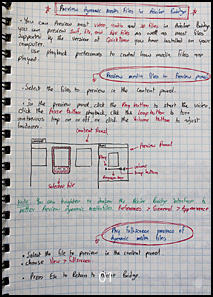 * Preview dynamic media files in Adobe Bridge *
- You can preview most video, audio and 3D files in Adobe Bridge
you can preview Swf, flv and f4v files as well as most files
supported by the version of Quicktime you have installed on your
computer.
Use playback preferences to control how media files are
played.
Preview media files in Preview panel
- Select the files to preview in the content panel.
- In the preview panel, click the Play button to start the video,
click the Pause button playback, click the Loop button to turn
continuous loop on or off, click the Volume button to adjust
loudness.
Content Panel
Preview Panel
volume
loop button
Selected file
Note: You can brighten or darken the Adobe Bridge interface to
better preview dynamic media files. Preferences > General > Appearance
Play fullscreen previews of
dynamic media files
• Select the file to preview in the content panel.
• choose View > fullscreen.
• Press Esc to Return to Adobe Bridge.
01